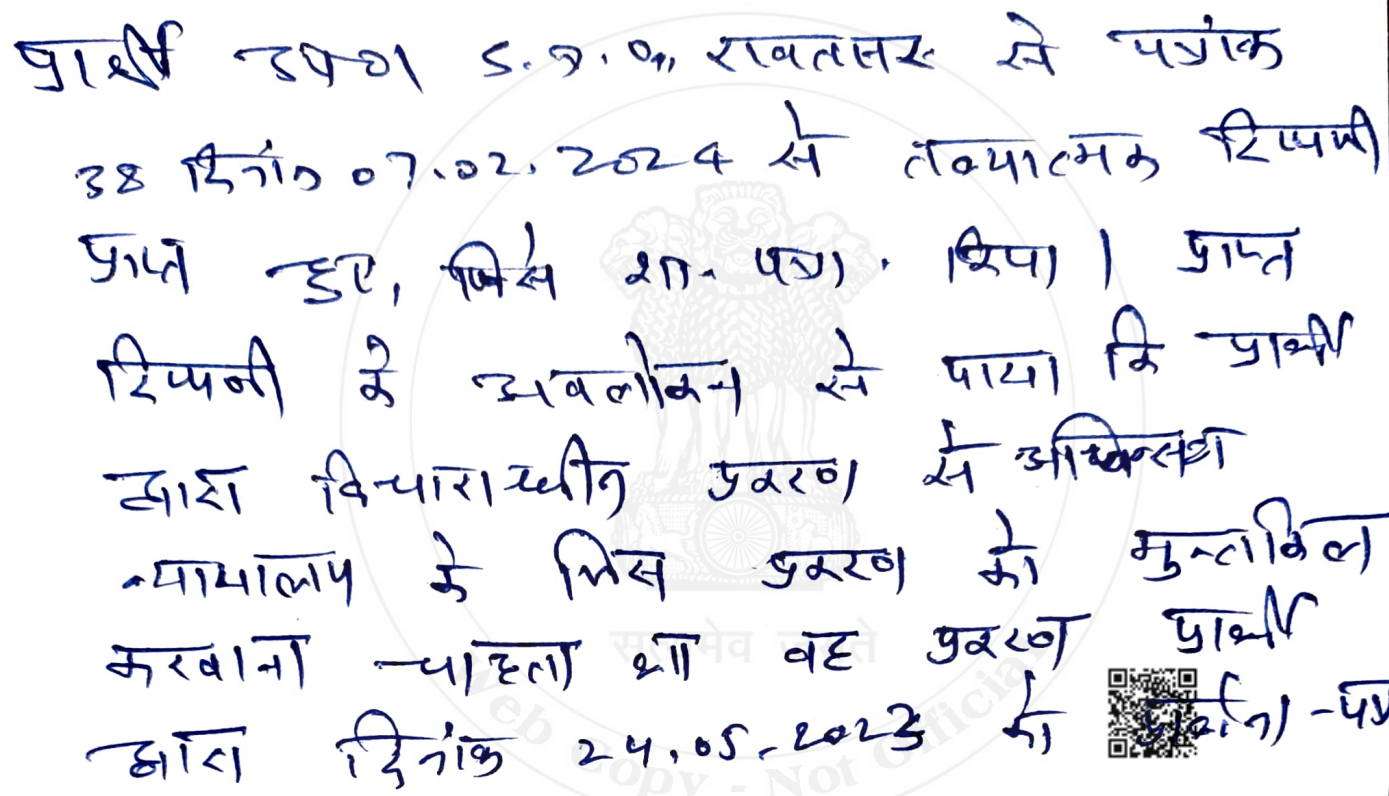 प्रार्थी उपण S.D.O, रावतसर से पत्रांक
38 दिनांक 07.02.2024 से तथ्यात्मक टिप्पणी
प्राप्त हुए, जिसे शा. पत्रा. किया। प्राप्त
टिप्पणी के अवलोकन से पाया कि प्रार्थी
द्वारा विचाराधीन प्रकरण से अधिनस्थ
न्यायालय के जिस प्रकरण को मुन्तकिल
करवाना चाहता था वह प्रकरण प्रार्थी
द्वारा दिनांक 24.05.2023 को प्रार्थना-पत्र
सत्यमेव जयते
Web Copy - Not Official